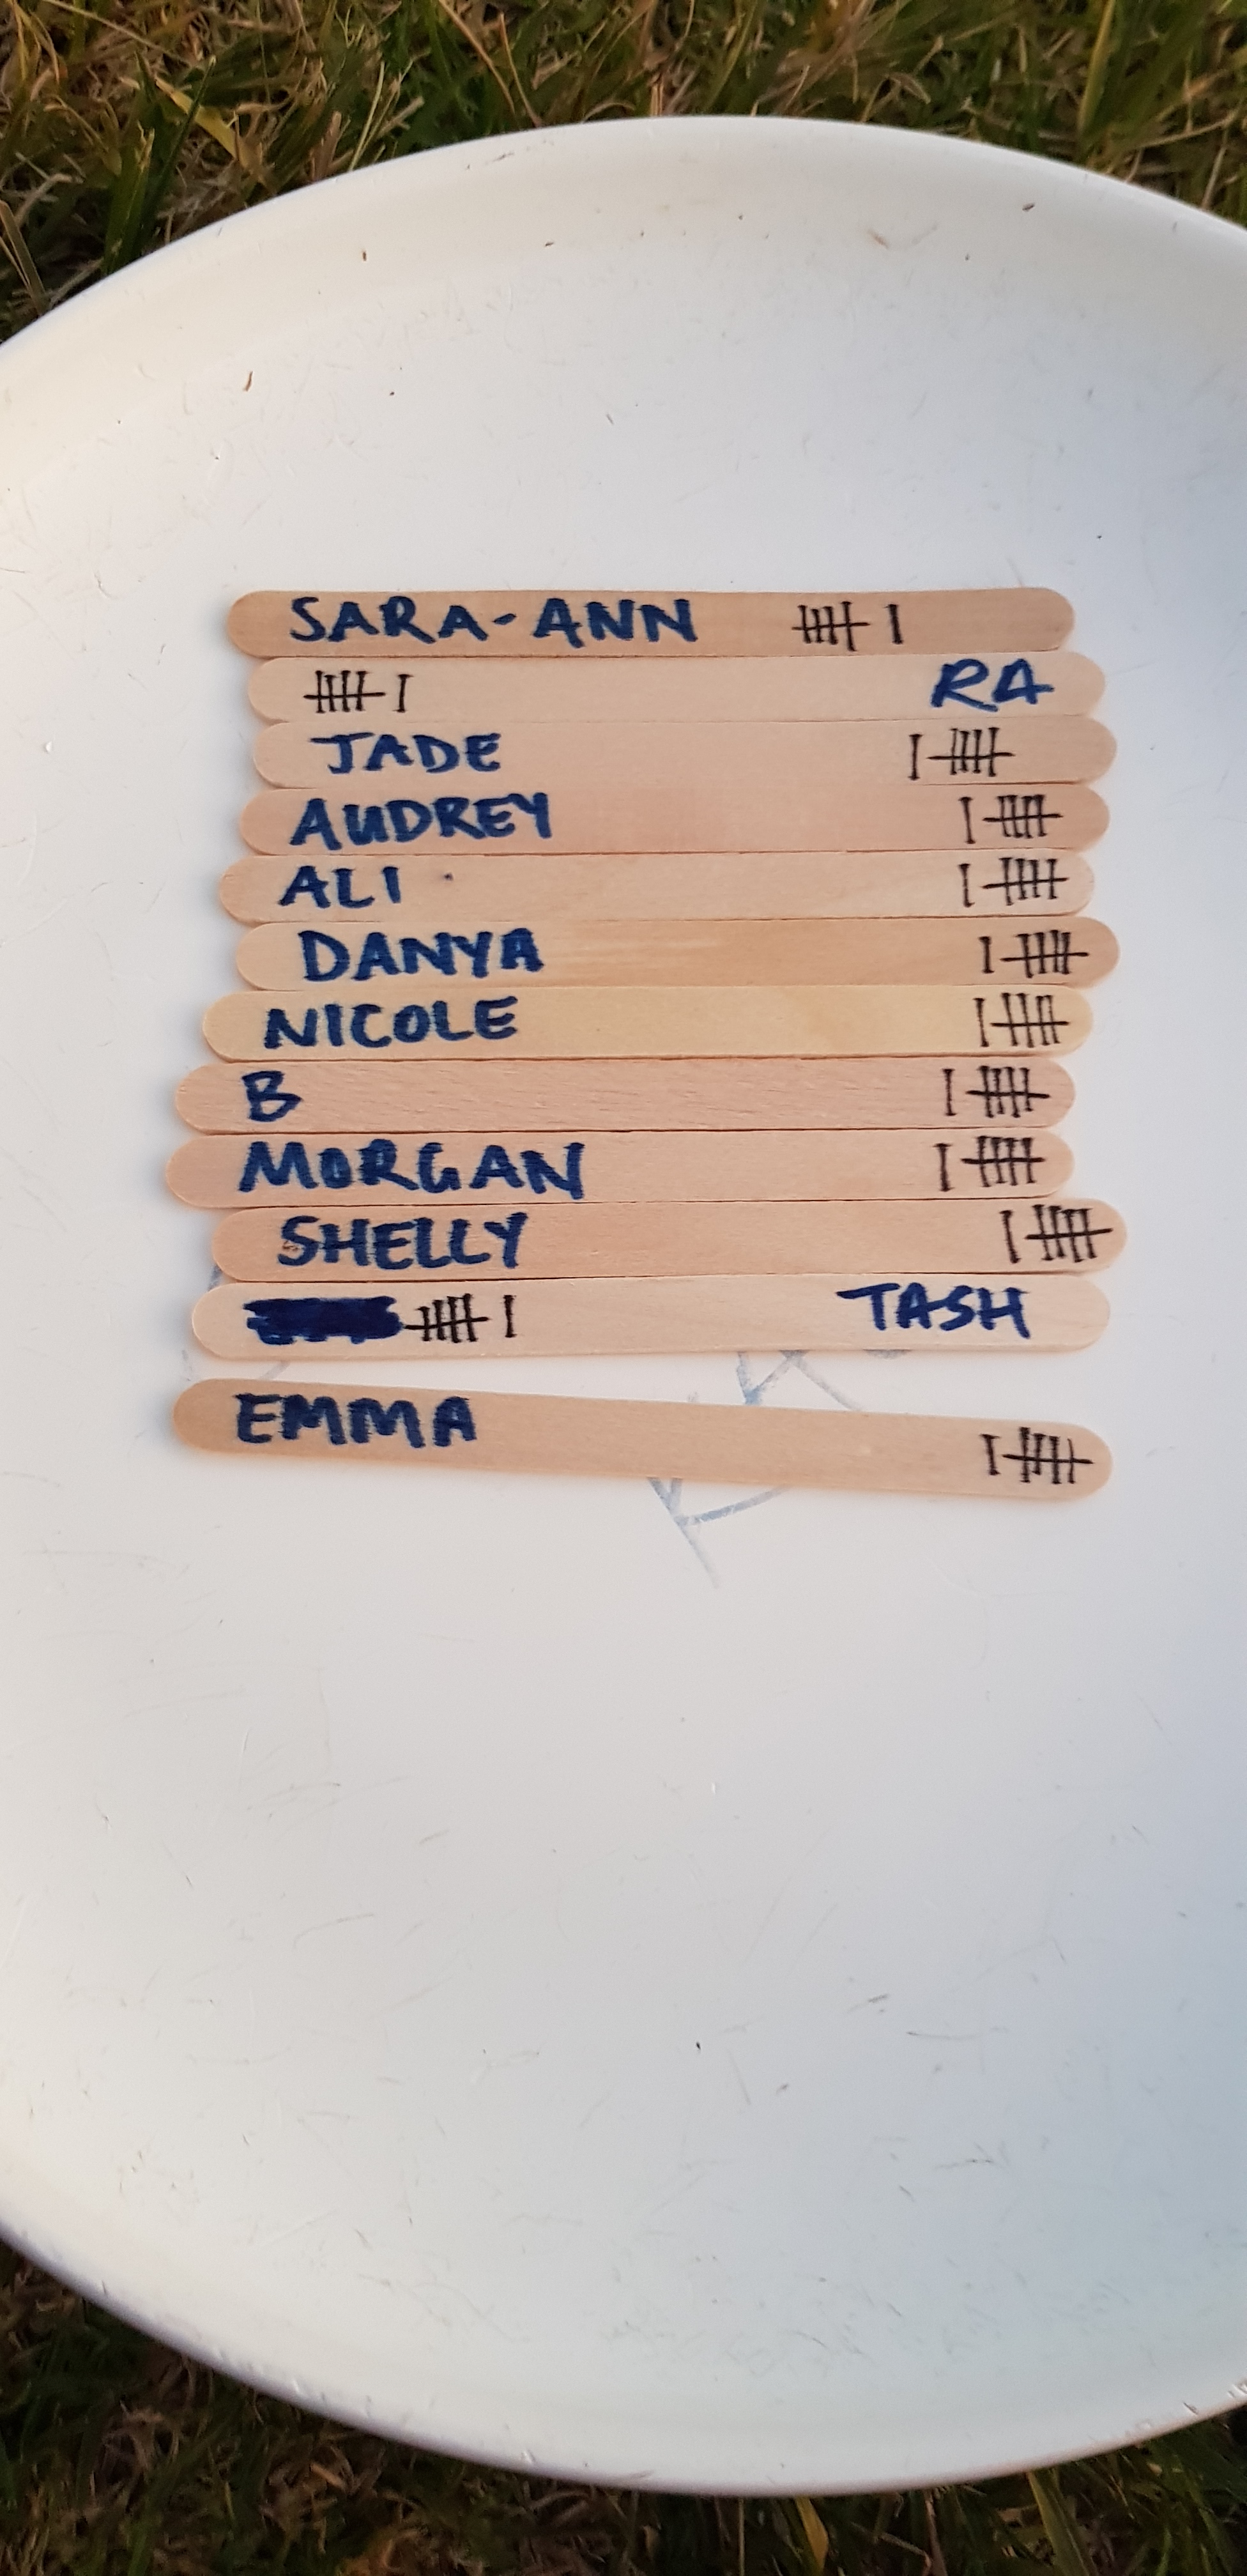 SARA-ANN 卌 I
卌 I RA
JADE I 卌
AUDREY I 卌
ALI I 卌
DANYA I 卌
NICOLE I 卌
B I 卌
MORGAN I 卌
SHELLY I 卌
卌 I TASH
EMMA I 卌